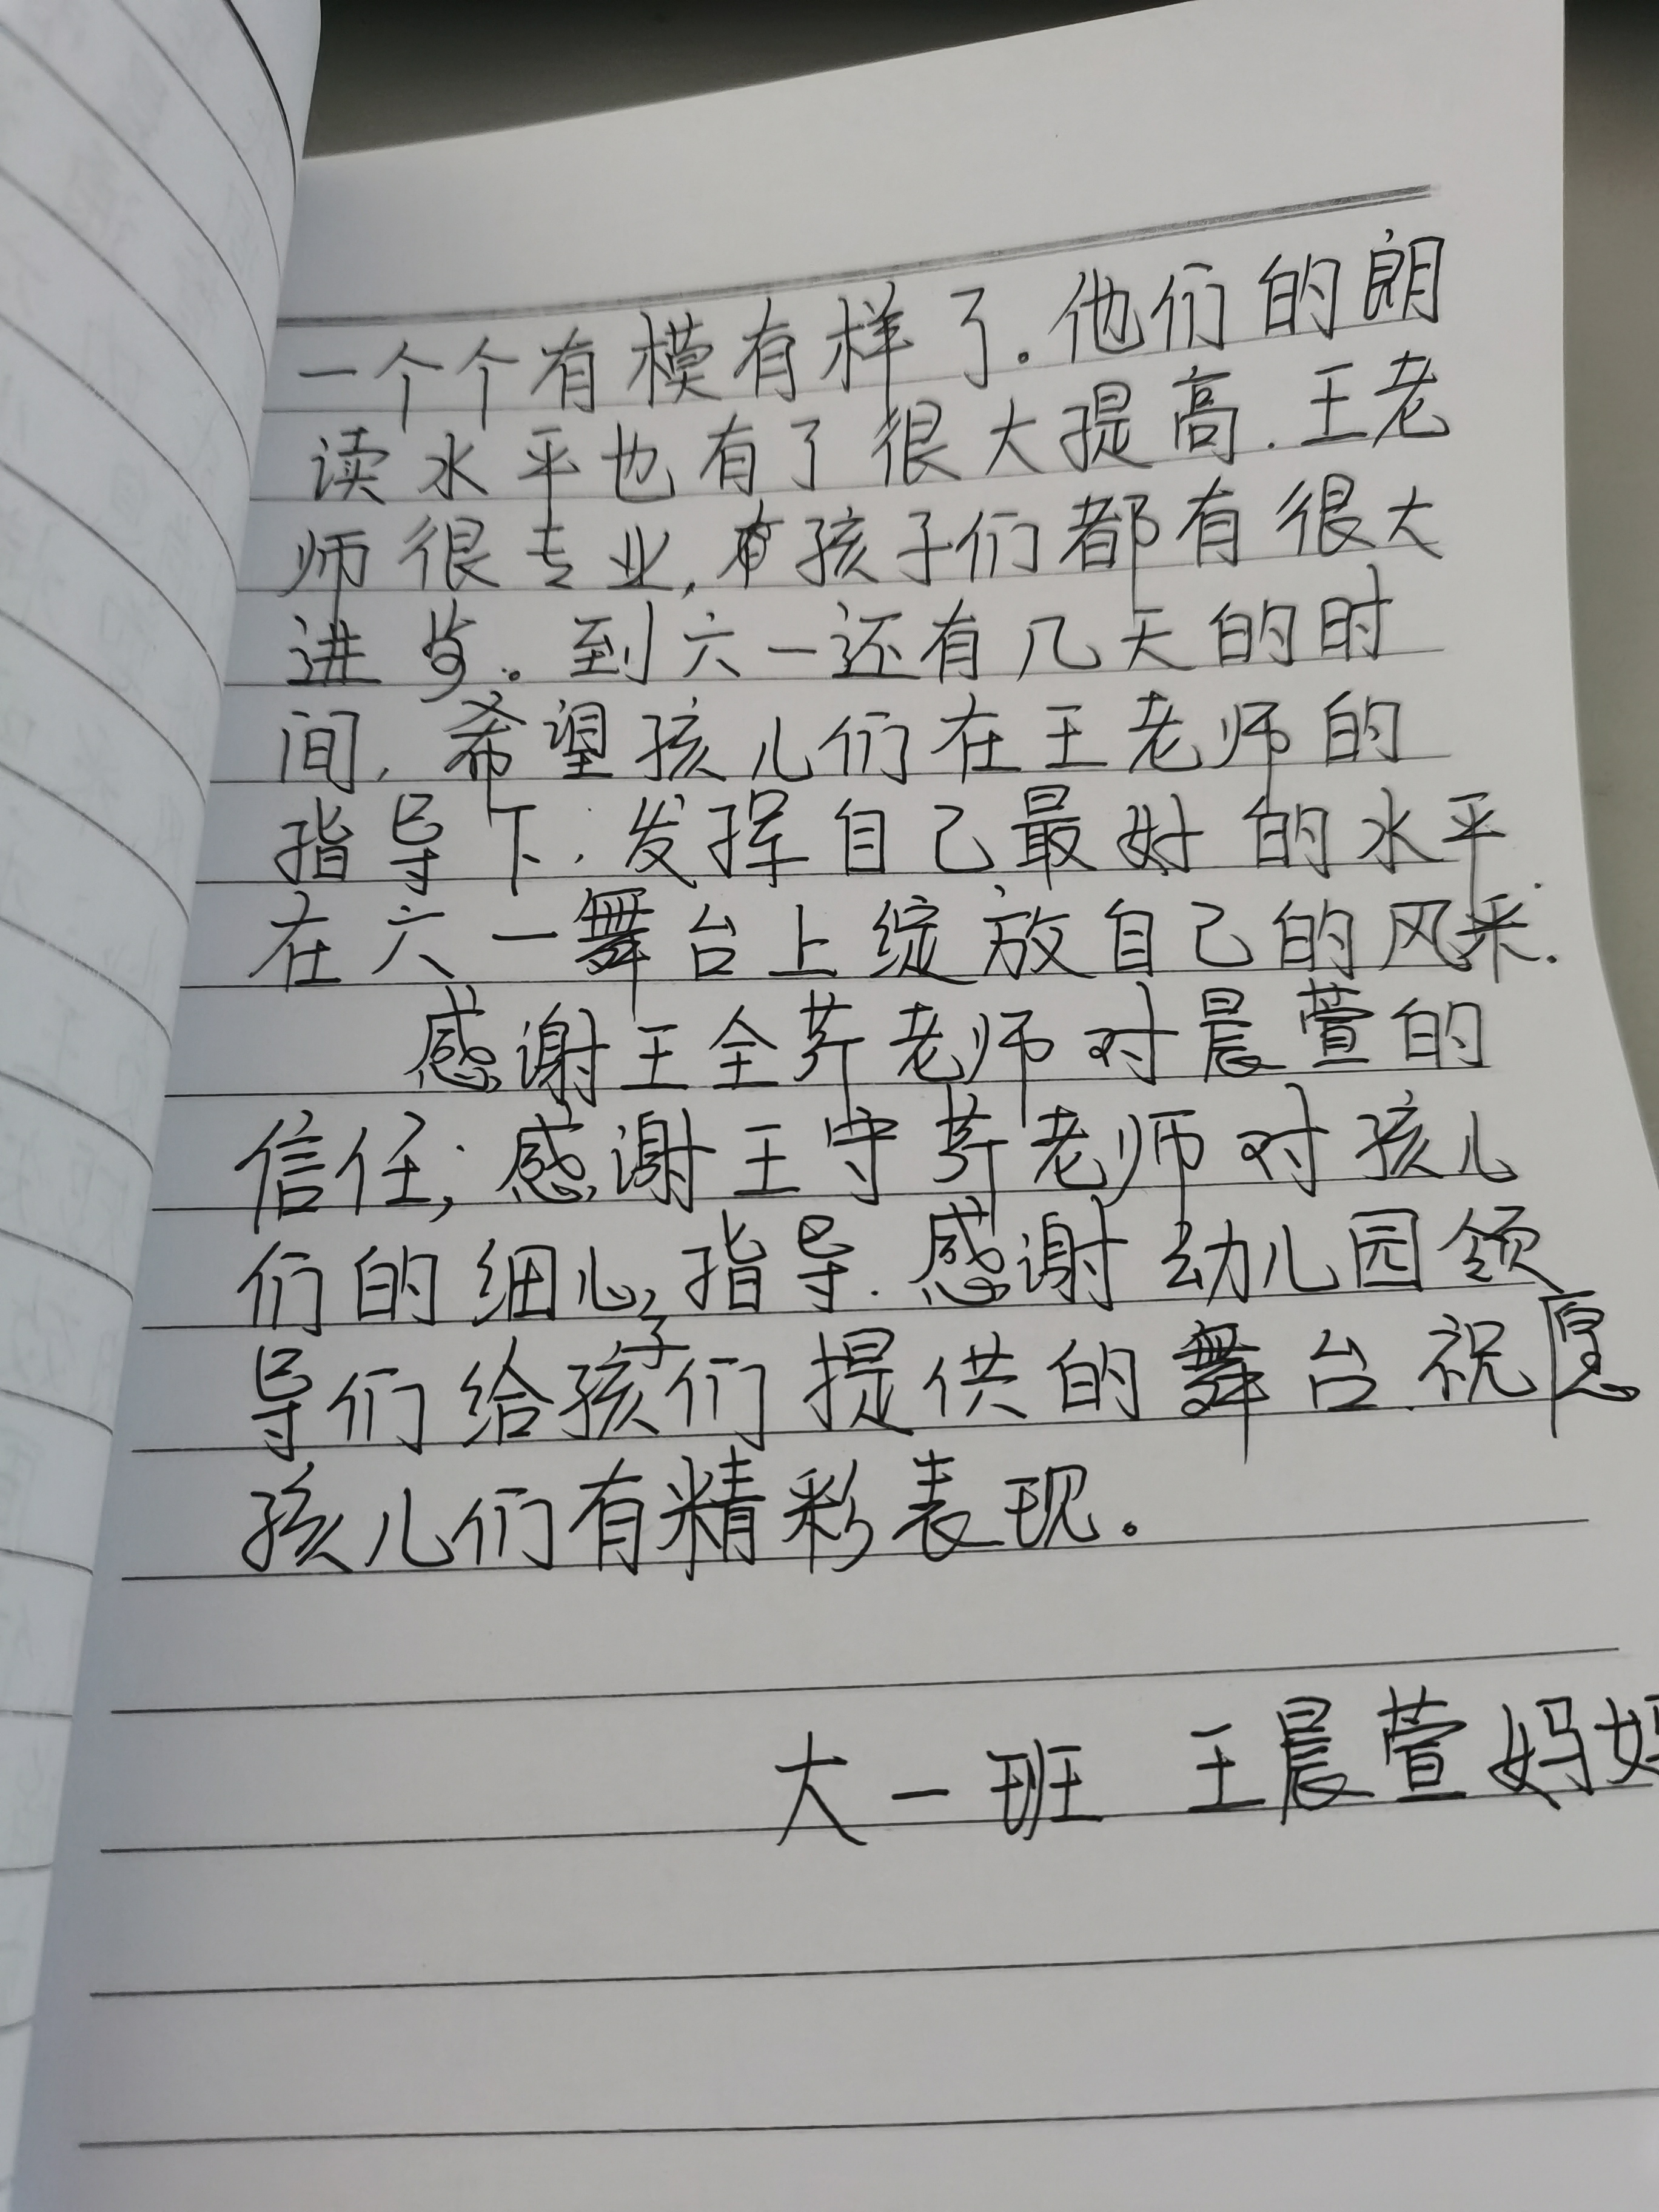 一个个有模有样了.他们的朗
读水平也有了很大提高.王老
师很专业,孩子们都有很大
进步。到六一还有几天的时
间,希望孩儿们在王老师的
指导下,发挥自己最好的水平
在六一舞台上绽放自己的风采.
感谢王全荞老师对晨萱的
信任;感谢王守荞老师对孩儿
们的细心指导.感谢幼儿园领
导们给孩子们提供的舞台.祝愿
孩儿们有精彩表现。
大一班 王晨萱妈妈